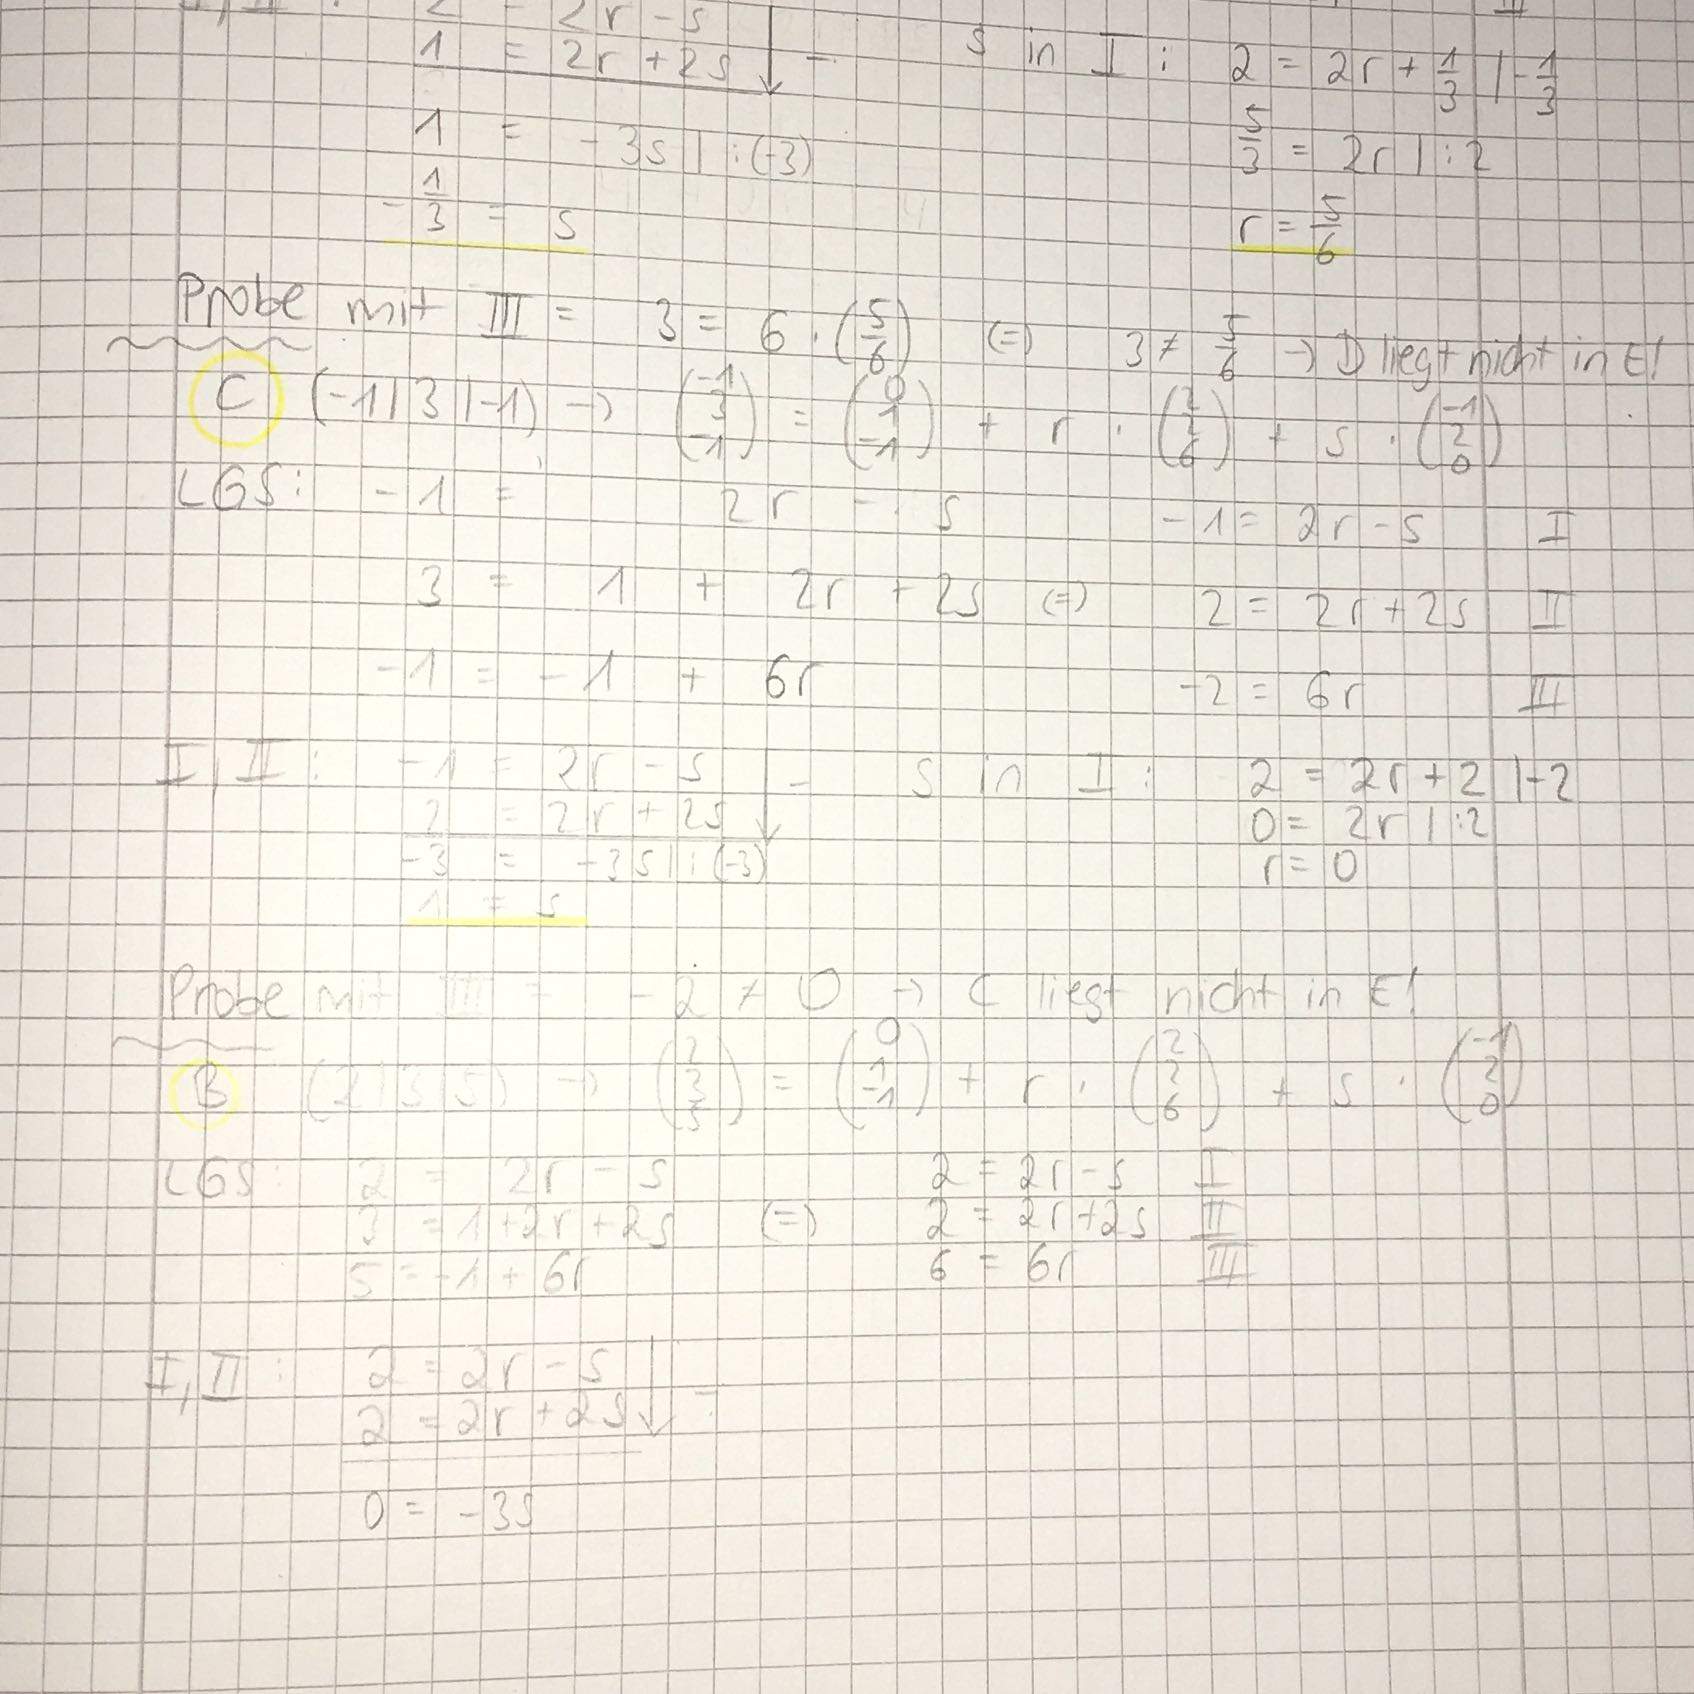 2 = 2r - s
1 = 2r + 2s -
1 = -3s | :(-3)
-1/3 = s
III
s in I : 2 = 2r + 1/3 | -1/3
5/3 = 2r | :2
r = 5/6
Probe mit III = 3 = 6 · (5/6) (=) 3 ≠ 5/6 → D liegt nicht in E!
C (-1|3|-1) → (-1 3 -1) = (0 1 -1) + r · (2 2 6) + s · (-1 2 0)
LGS: -1 = 2r - s -1 = 2r - s I
3 = 1 + 2r + 2s (=) 2 = 2r + 2s II
-1 = -1 + 6r -2 = 6r III
I, II: -1 = 2r - s -
2 = 2r + 2s
-3 = -3s | :(-3)
1 = s
s in I : 2 = 2r + 2 | -2
0 = 2r | :2
r = 0
Probe mit III = -2 ≠ 0 → C liegt nicht in E!
B (2|3|5) → (2 3 5) = (0 1 -1) + r · (2 2 6) + s · (-1 2 0)
LGS: 2 = 2r - s 2 = 2r - s I
3 = 1 + 2r + 2s (=) 2 = 2r + 2s II
5 = -1 + 6r 6 = 6r III
I, II: 2 = 2r - s
2 = 2r + 2s -
0 = -3s